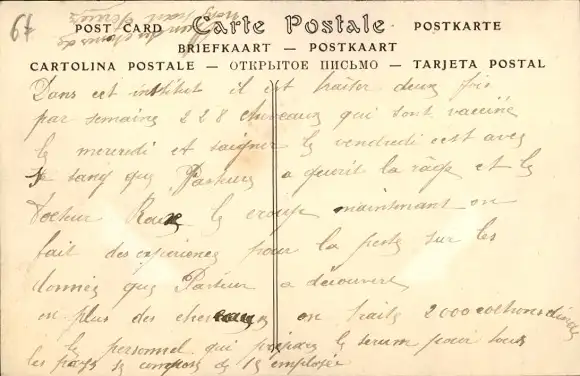 67
POST CARD Carte Postale POSTKARTE
BRIEFKAART — POSTKAART
CARTOLINA POSTALE — ОТКРЫТОЕ ПИСЬМО — TARJETA POSTAL
Dans cet institut il est traiter deux fois
par semaine 228 cheveaux qui sont vacciné
le mercredi et saigner le vendredi cest avec
le sang que Pasteur a guerit la rage et le
Docteur Roux le croupe maintenant on
fait des experiences pour la peste sur les
données que Pasteur a découvert
en plus des chevaux on traite 2000 cochons dinde
le personnel qui prépare le serum pour tous
les pays se compose de 12 employée